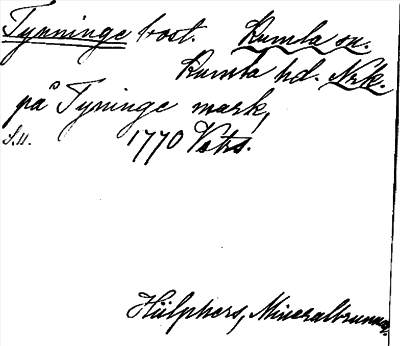 Tynninge bost. Kumla sn.
Kumla hd. Nrk.
på Tyninge mark,
S.11. 1770 Vstrs.
Hülphers, Mineralbrunnar.